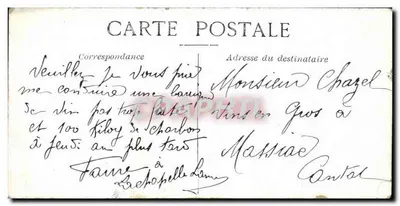 CARTE POSTALE
Correspondance
Adresse du destinataire
Veuillez je vous prie
me construire une
de vin pas trop
et 100 kilog de charbon
à Jeudi au plus tard
Faure à
Lachapelle
Monsieur Chazel
Vins en Gros à
Massiac
Cantal